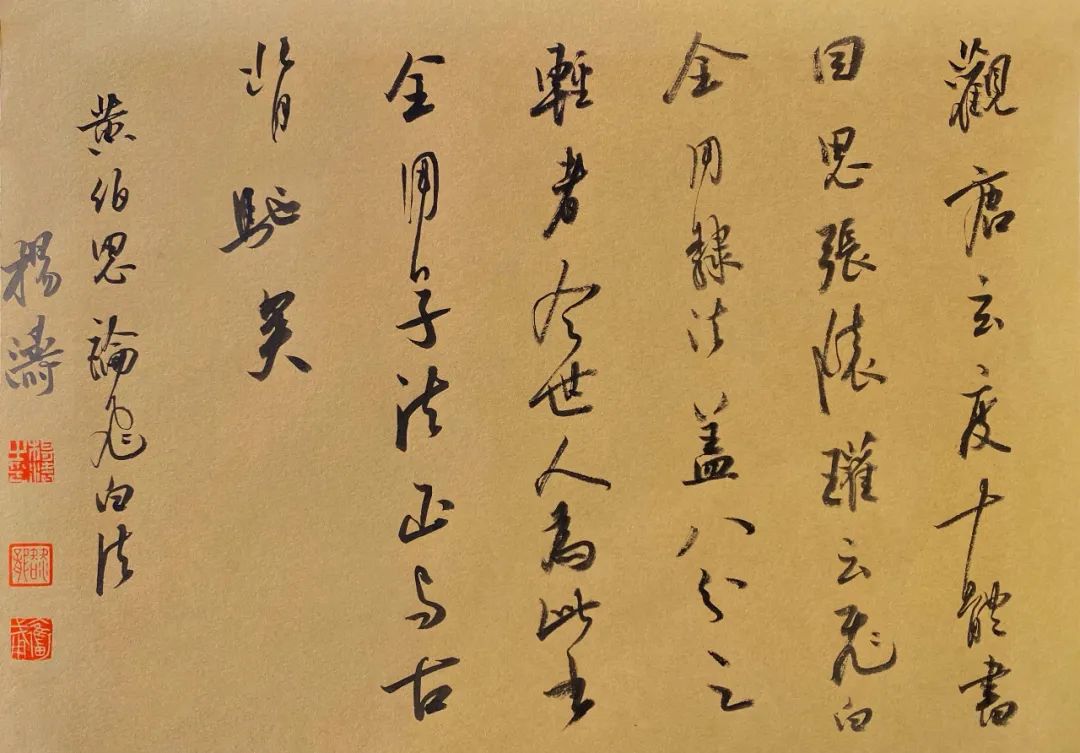 觀唐玄度十體書
因思張懷瓘云飛白
全用隸法蓋八分之
輕者今世人為此書
全用草法正与古
背馳矣
黃伯思論飛白法
楊濤
楊濤之印